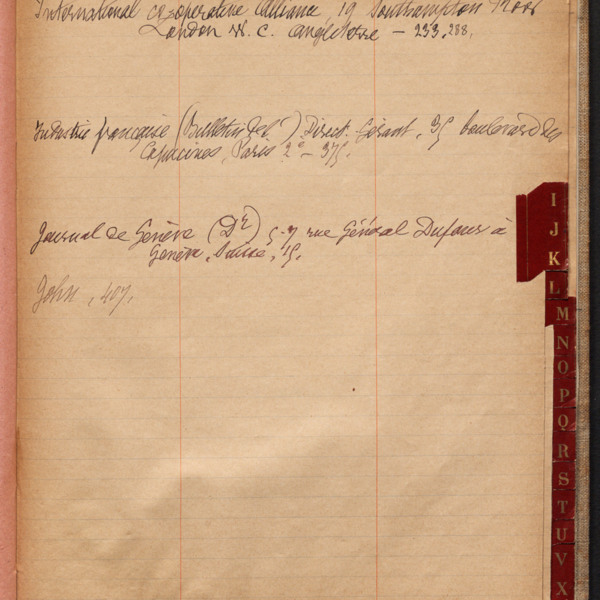 International co-operative Alliance, 19 Southampton Row
London W. C. Angleterre — 233, 288,
Industrie française (Bulletin de l' ) Direct. Gérant, 35 boulevard des
Capucines, Paris 2e — 375.
Journal de Genève (Dr) 5-7 rue Général Dufour à
Genève, Suisse, 15.
John, 407.
I
J
K
L
M
N
O
P
Q
R
S
T
U
V
X